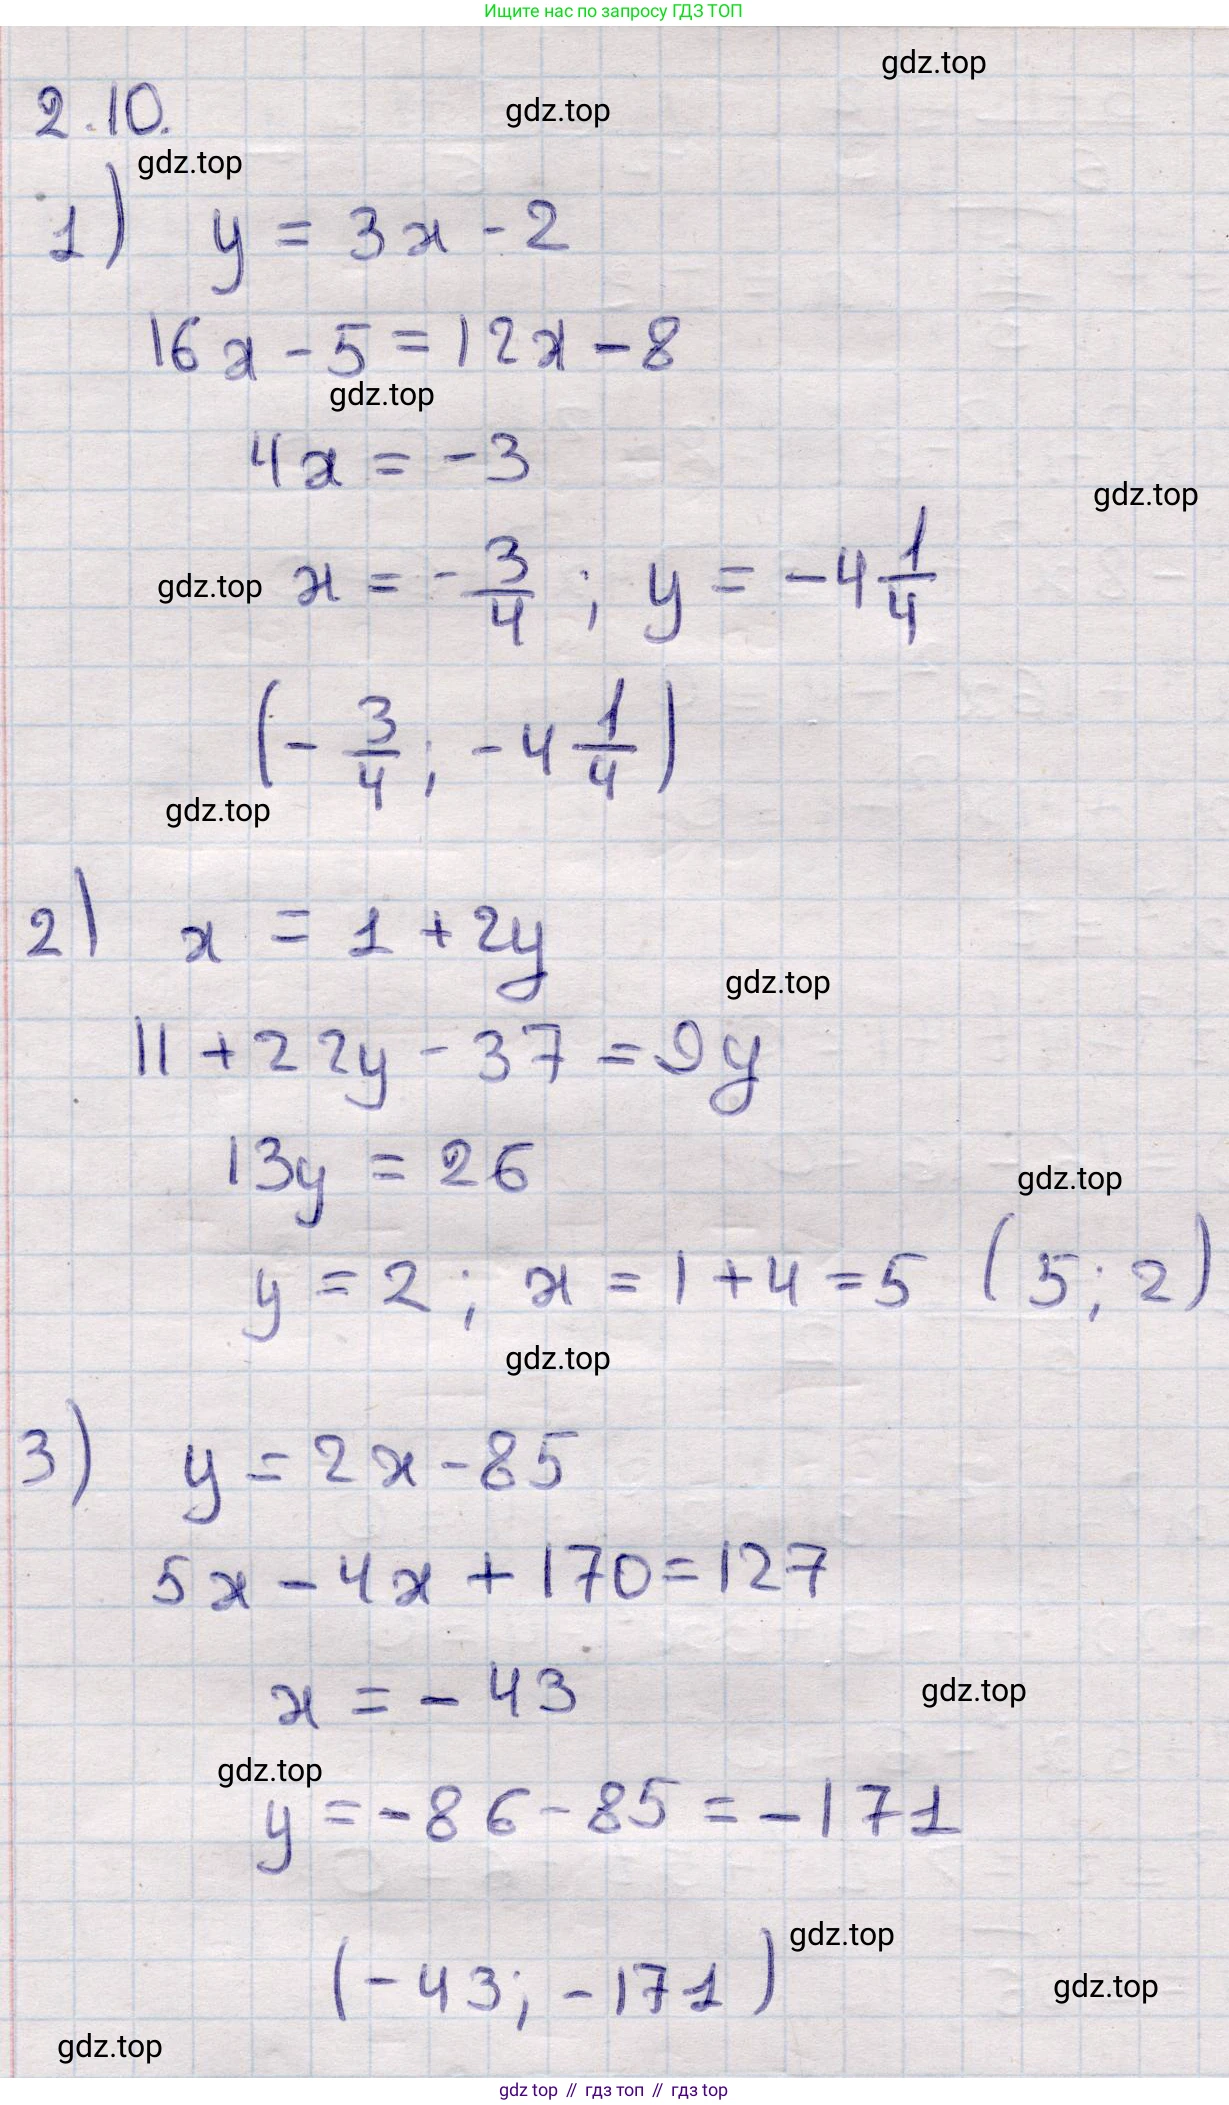 Ищите нас по запросу ГДЗ ТОП
gdz.top
2.10.
gdz.top
gdz.top
1) y = 3x - 2
16x - 5 = 12x - 8
gdz.top
4x = -3
gdz.top
gdz.top x = -3/4 ; y = -4 1/4
(-3/4; -4 1/4)
gdz.top
2) x = 1 + 2y
gdz.top
11 + 22y - 37 = 9y
13y = 26
gdz.top
y = 2; x = 1 + 4 = 5 (5; 2)
gdz.top
3) y = 2x - 85
5x - 4x + 170 = 127
x = -43
gdz.top
gdz.top
y = -86 - 85 = -171
gdz.top
(-43; -171)
gdz.top
gdz.top
gdz top // гдз топ // гдз top